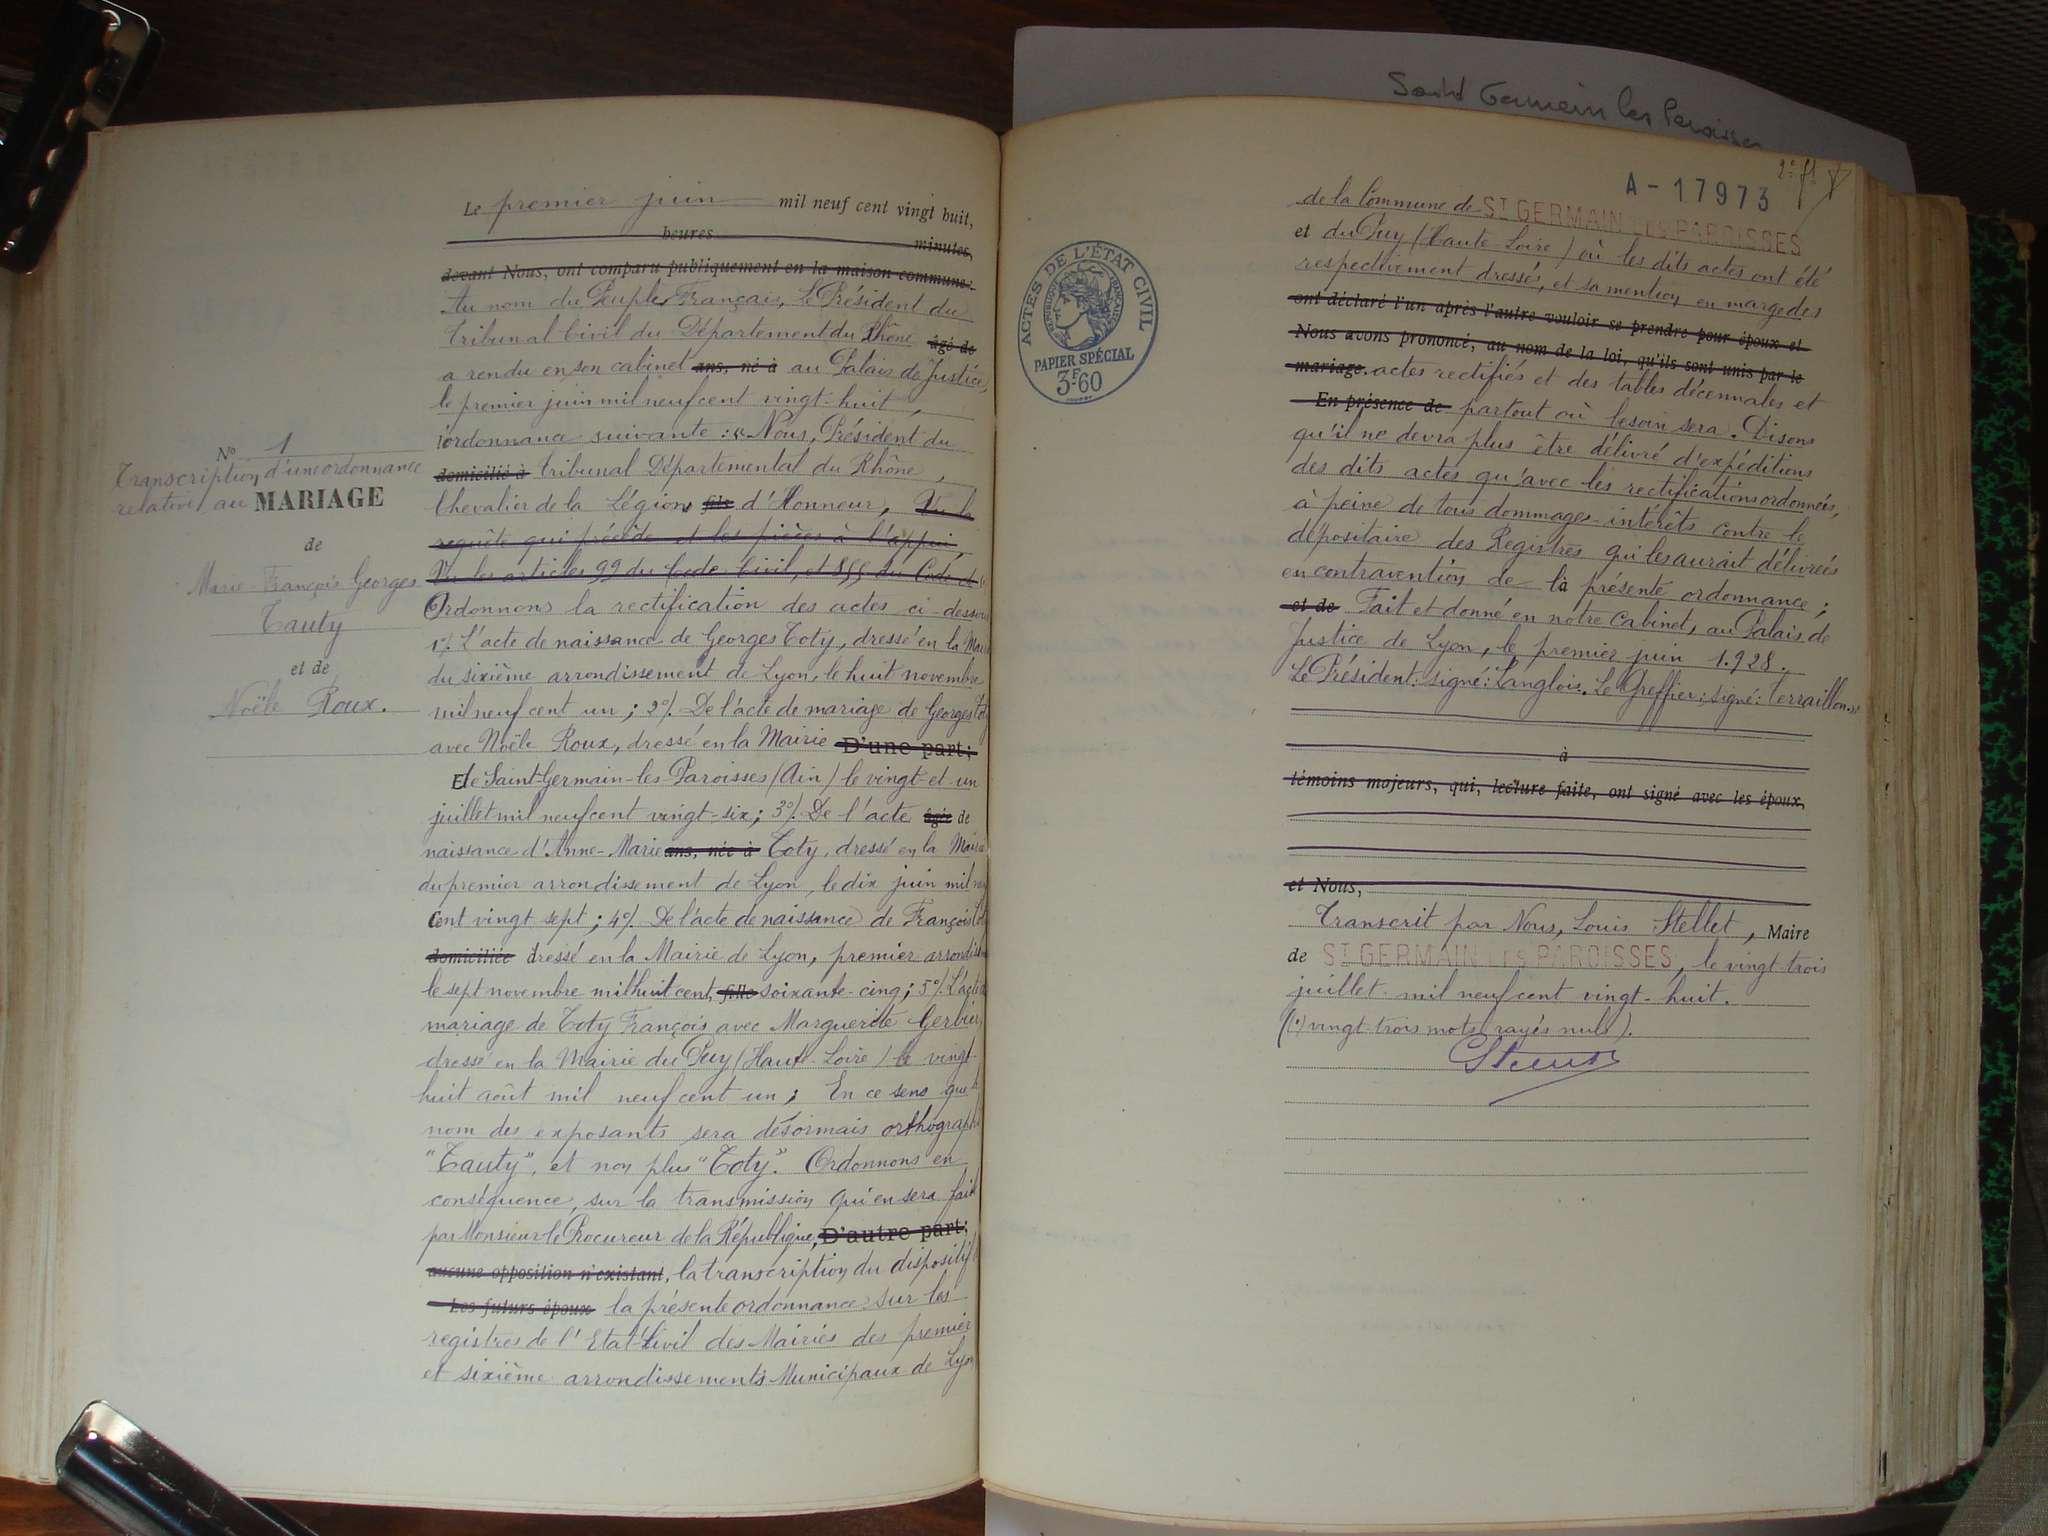 Sanit Germain les Paroisses
Le premier juin mil neuf cent vingt huit,
heures minutes,
devant Nous, ont comparu publiquement en la maison commune:
Au nom du Peuple Français, Le Président du
Tribunal Civil du Département du Rhône âgé de
a rendu en son cabinet ans, né à au Palais de Justice,
le premier juin mil neuf cent vingt-huit,
l'ordonnance suivante : « Nous, Président du
domicilié à Tribunal Départemental du Rhône,
Chevalier de la Légion fils d'Honneur, Vu la
requête qui précède et les pièces à l'appui,
Vu les articles 99 du Code Civil, et 855 du Code et
Ordonnons la rectification des actes ci-dessous
1°/. L'acte de naissance de Georges Toty, dressé en la Mai
du sixième arrondissement de Lyon, le huit novembre
mil neuf cent un ; 2°/. De l'acte de mariage de Georges Tot
avec Noële Roux, dressé en la Mairie D'une part;
Et de Saint-Germain-les-Paroisses (Ain) le vingt-et-un
juillet mil neuf cent vingt-six ; 3°/. De l'acte âgée de
naissance d'Anne-Marie ans, née à Toty, dressé en la Mairie
du premier arrondissement de Lyon, le dix juin mil neu
cent vingt sept ; 4°/. De l'acte de naissance de François Tot
domiciliée dressé en la Mairie de Lyon, premier arrondis
le sept novembre mil huit cent fille soixante-cinq ; 5°/. L'acte d
mariage de Toty François avec Marguerite Gerbier,
dressé en la Mairie du Puy (Haute-Loire) le vingt-
huit août mil neuf cent un ; En ce sens que le
nom des exposants sera désormais orthographi
"Tauty", et non plus "Toty". Ordonnons en
conséquence, sur la transmission qu'en sera fait
par Monsieur le Procureur de la République, D'autre part;
aucune opposition n'existant, la transcription du dispositif
Les futurs époux la présente ordonnance sur les
registres de l'Etat-Civil des Mairies des premier
et sixième arrondissements Municipaux de Lyon
N° 1
Transcription d'une ordonnance
relative au MARIAGE
de
Marie-François Georges
Tauty
et de
Noële Roux.
ACTES DE L'ÉTAT CIVIL
RÉPUBLIQUE FRANÇAISE
PAPIER SPÉCIAL
3F.60
2e f1
A - 17973
de la Commune de ST GERMAIN LES PAROISSES
et du Puy (Haute-Loire) où les dits actes ont été
respectivement dressés, et sa mention en marge des
ont déclaré l'un après l'autre vouloir se prendre pour époux et
Nous avons prononcé, au nom de la loi, qu'ils sont unis par le
mariage. actes rectifiés et des tables décennales et
En présence de partout où besoin sera. Disons
qu'il ne devra plus être délivré d'expéditions
des dits actes qu'avec les rectifications ordonnées,
à peine de tous dommages-intérêts contre le
dépositaire des Registres qui les aurait délivrées
en contravention de la présente ordonnance ;
et de Fait et donné en notre Cabinet, au Palais de
Justice de Lyon, le premier juin 1.928.
Le Président: signé: Langlois. Le Greffier: signé: Terraillon. »
à
témoins majeurs, qui, lecture faite, ont signé avec les époux,
et Nous,
Transcrit par Nous, Louis Stellet, Maire
de ST GERMAIN LES PAROISSES, le vingt-trois
juillet mil neuf cent vingt-huit.
(1) vingt-trois mots rayés nuls).